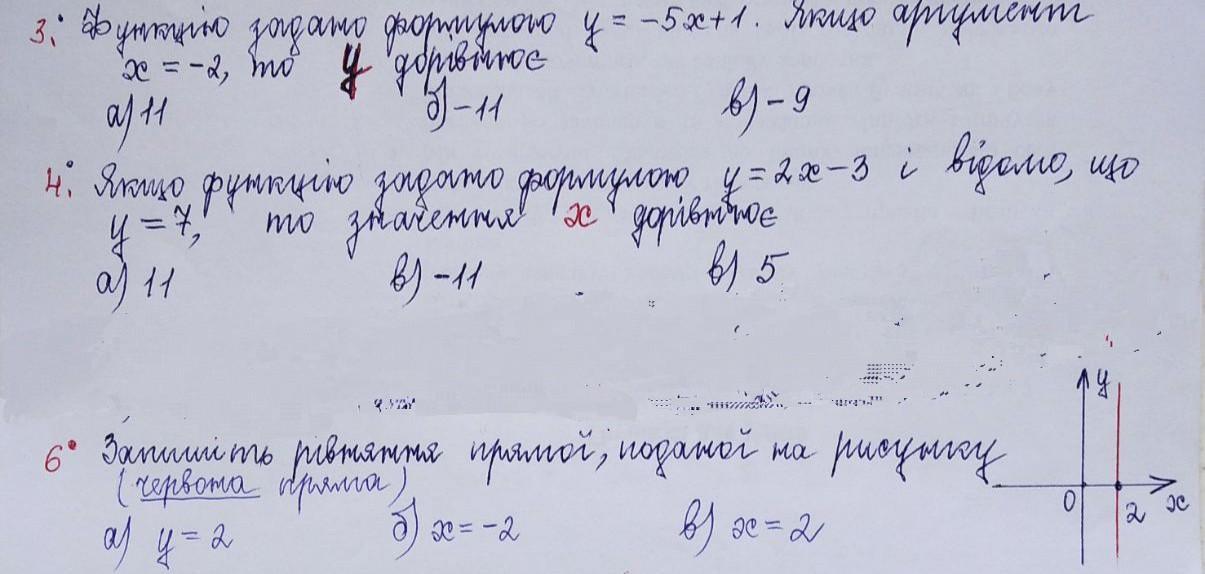 3. Функцію задано формулою y = -5x+1. Якщо аргумент
x = -2, то y дорівнює
а) 11 б) -11 в) -9
4. Якщо функцію задано формулою y = 2x-3 і відомо, що
y = 7, то значення x дорівнює
а) 11 в) -11 в) 5
y
6° Запишіть рівняння прямої, поданої на рисунку
(червона пряма)
0 2 x
а) y = 2 б) x = -2 в) x = 2